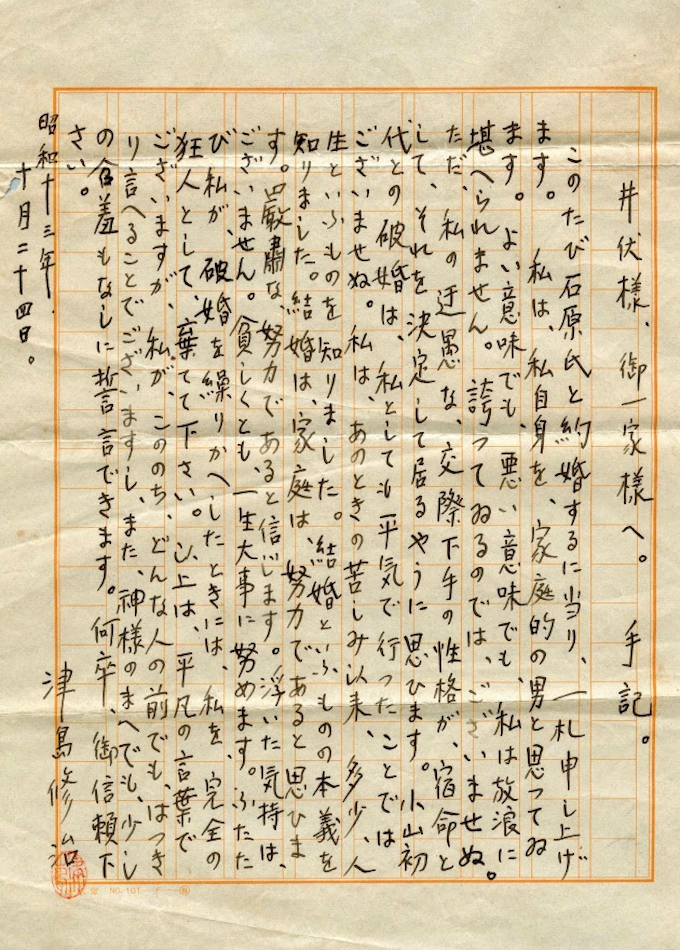 井伏様、御一家様へ。 手記。
このたび石原氏と約婚するに当り、一札申し上げ
ます。 私は、私自身を、家庭的の男と思つてゐ
ます。 よい意味でも、悪い意味でも、私は放浪に
堪へられません。誇つてゐるのでは、ございませぬ。
ただ、私の迂愚な、交際下手の性格が、宿命と
して、それを決定して居るやうに思ひます。小山初
代との破婚は、私としても平気で行つたことでは
ございませぬ。私は、あのときの苦しみ以来、多少、人
生といふものを知りました。結婚といふものの本義を
知りました。結婚は、家庭は、努力であると思ひま
す。厳粛な努力であると信じます。浮いた気持は、
ございません。貧しくとも、一生大事に努めます。ふたた
び私が、破婚を繰りかへしたときには、私を、完全の
狂人として、棄てて下さい。以上は、平凡の言葉で
ございますが、私が、こののち、どんな人の前でも、はつき
り言へることでございますし、また、神様のまへでも、少し
の含羞もなしに誓言できます。何卒、御信頼下
さい。
昭和十三年、
十月二十四日。
津島修治
NO.101